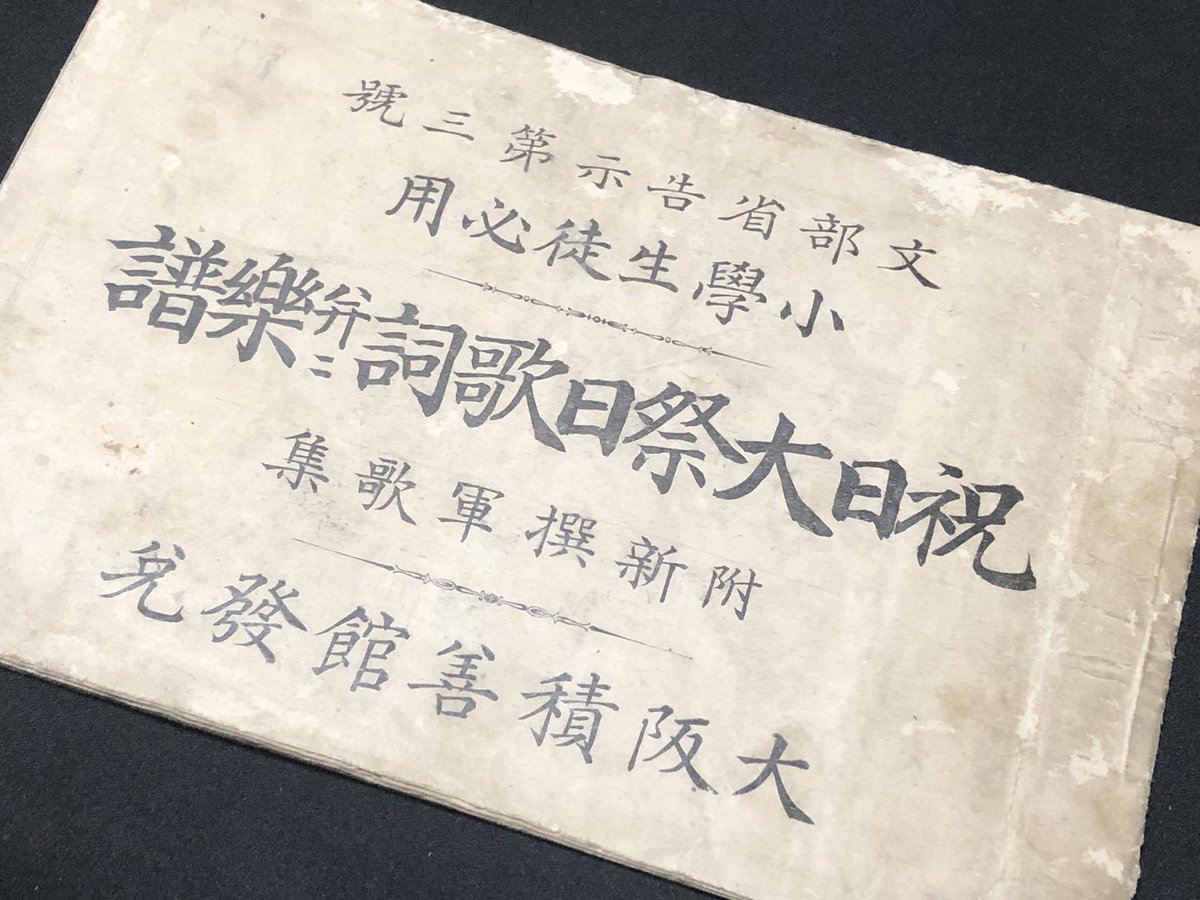 文部省告示第三號
小學生徒必用
祝日大祭日歌詞幷ニ樂譜
附新撰軍歌集
大阪積善館發兌